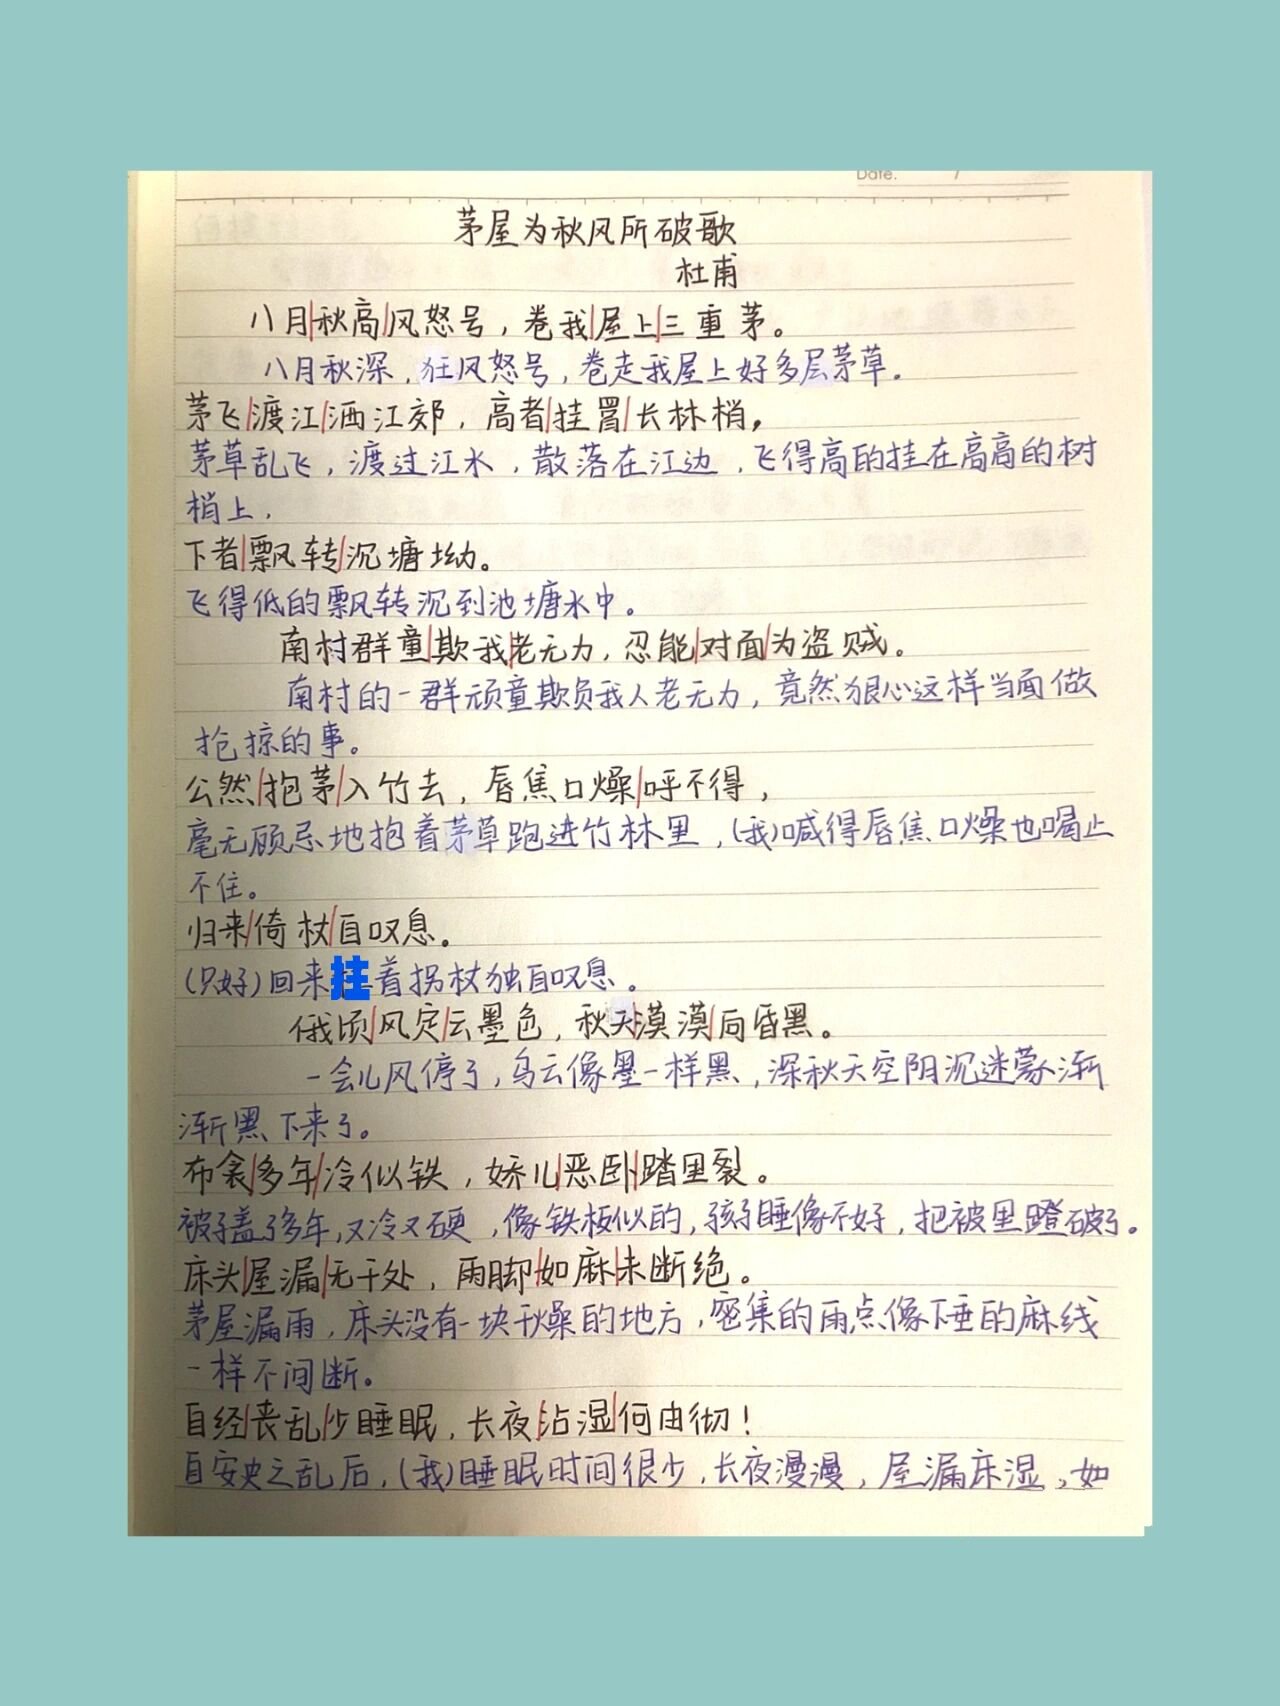 Date. /
茅屋为秋风所破歌
杜甫
八月|秋高|风怒号，卷我|屋上|三重茅。
八月秋深，狂风怒号，卷走我屋上好多层茅草．
茅飞|渡江|洒江郊，高者|挂罥|长林梢，
茅草乱飞，渡过江水，散落在江边，飞得高的挂在高高的树
梢上，
下者|飘转|沉塘坳。
飞得低的飘转沉到池塘水中．
南村群童|欺我|老无力，忍能|对面|为盗贼。
南村的一群顽童欺负我人老无力，竟然狠心这样当面做
抢掠的事。
公然|抱茅|入竹去，唇焦口燥|呼不得，
毫无顾忌地抱着茅草跑进竹林里，(我)喊得唇焦口燥也喝止
不住。
归来|倚杖|自叹息。
(只好)回来拄着拐杖独自叹息．
俄顷|风定|云墨色，秋天|漠漠|向昏黑。
一会儿风停了，乌云像墨一样黑，深秋天空阴沉迷蒙渐
渐黑下来了。
布衾|多年|冷似铁，娇儿|恶卧|踏里裂。
被子盖了多年，又冷又硬，像铁板似的，孩子睡像不好，把被里蹬破了．
床头|屋漏|无干处，雨脚|如麻|未断绝。
茅屋漏雨，床头没有一块干燥的地方，密集的雨点像下垂的麻线
一样不间断。
自经|丧乱|少睡眠，长夜|沾湿|何由彻！
自安史之乱后，(我)睡眠时间很少，长夜漫漫，屋漏床湿，如